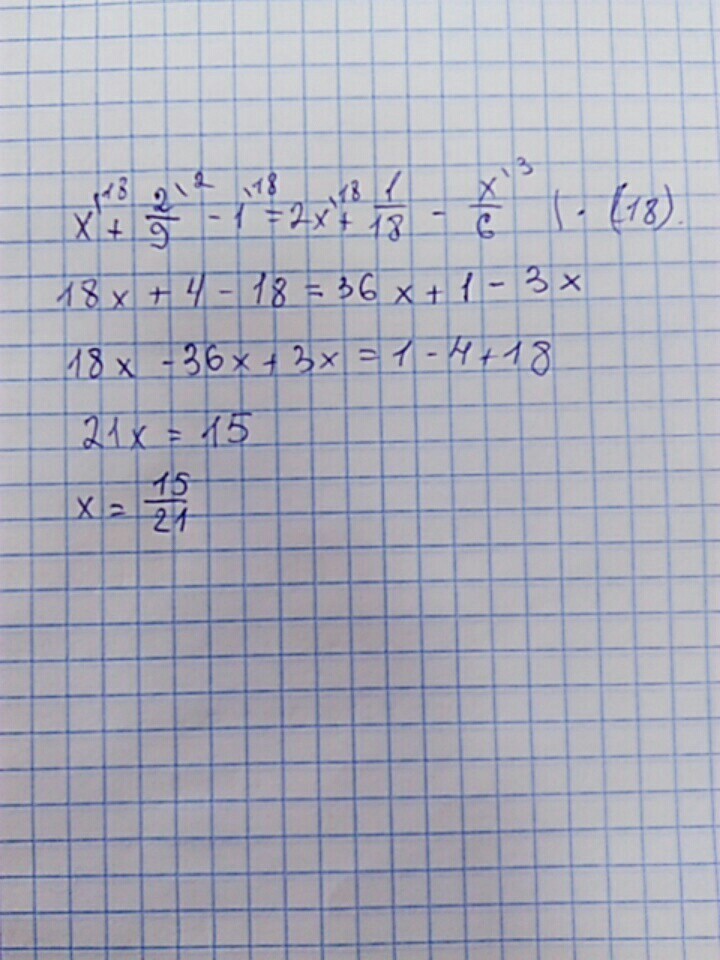 x^{\18} + \frac{2}{9}^{\2} - 1^{\18} = 2x^{\18} + \frac{1}{18} - \frac{x}{6}^{\3} | · (18).
18x + 4 - 18 = 36x + 1 - 3x
18x - 36x + 3x = 1 - 4 + 18
21x = 15
x = \frac{15}{21}